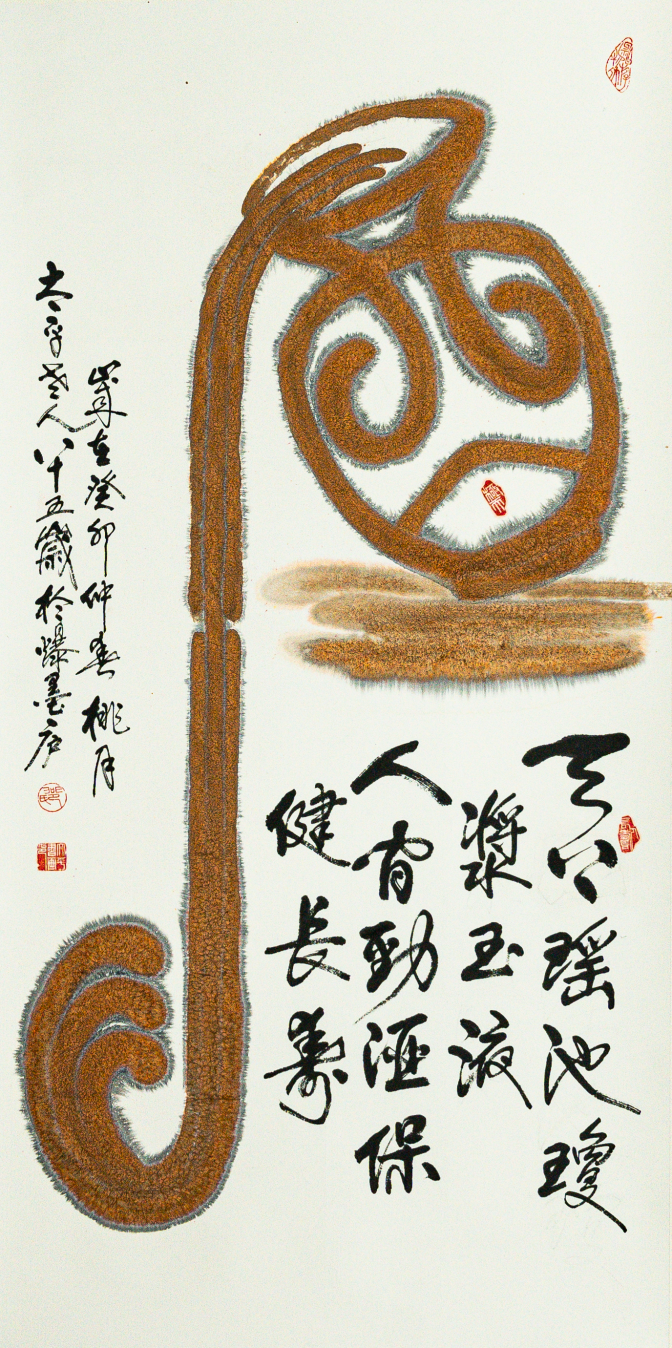 天上瑶池瓊
漿玉液
人間勁酒保
健長壽
歲在癸卯仲春桃月
太平老人八十五歲於爆墨庐